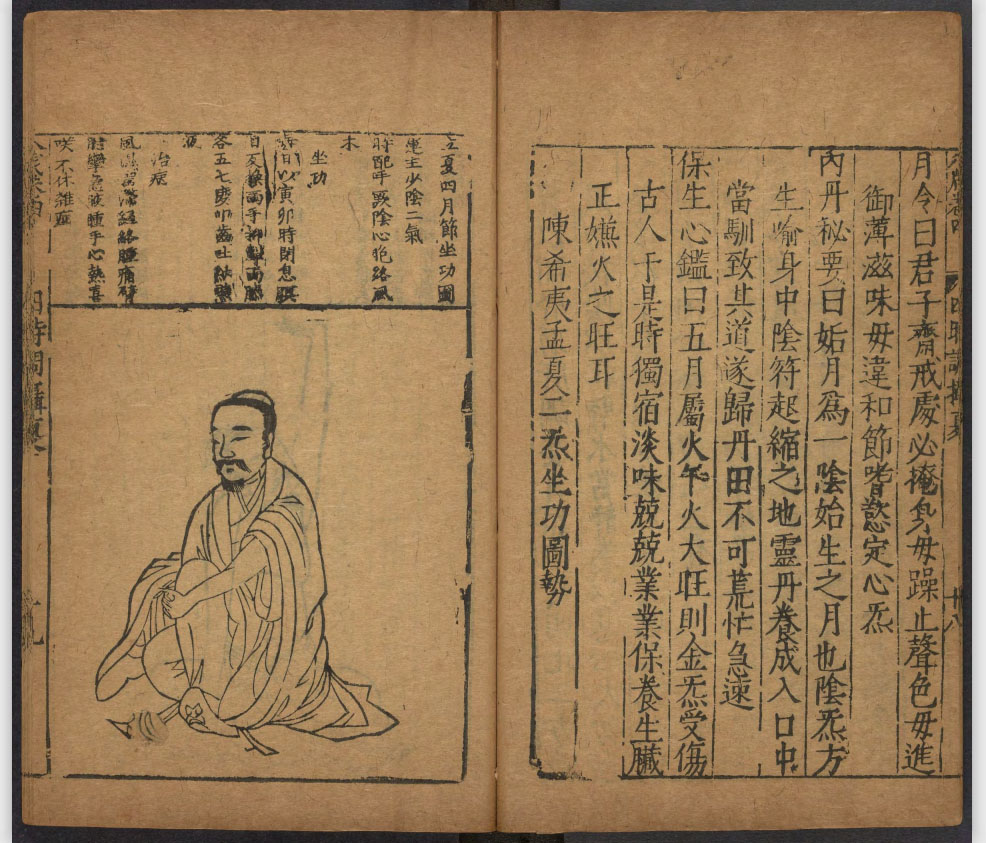 月令曰君子齋戒處必掩身毋躁止聲色毋進
御薄滋味毋違和節嗜慾定心炁
內丹秘要曰姤月爲一陰始生之月也陰炁方
生喻身中陰符起縮之地靈丹養成入口中
當馴致其道遂歸丹田不可荒忙急速
保生心鑑曰五月屬火午火大旺則金炁受傷
古人于是時獨宿淡味兢兢業業保養生臟
正嫌火之旺耳
陳希夷孟夏二炁坐功圖勢
四時調攝
十八
立夏四月節坐功圖
運主少陰二氣
時配手厥陰心胞絡風
木
坐功
每日以寅卯時閉息瞑
目反換兩手抑掣兩膝
各五七度叩齒吐納嚥
液
治症
風濕留滯經絡腫痛臂
肘攣急腋腫手心熱喜
咲不休雜症
四時調攝
十九